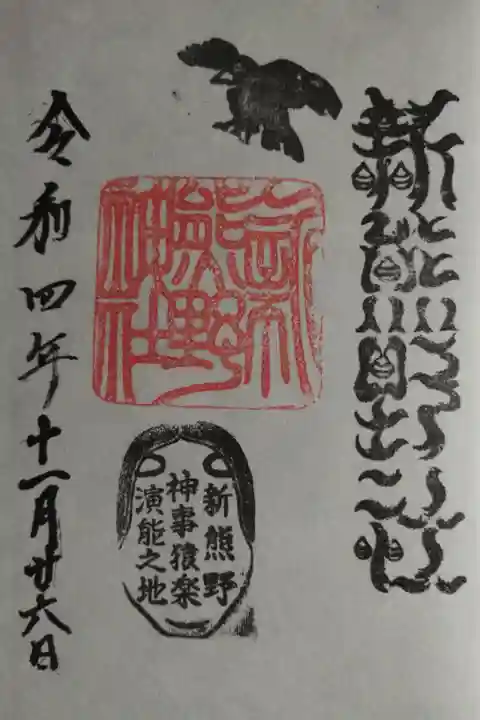 新熊野
新熊野神社
新熊野
神事猿楽
演能之地
令和四年十一月廿六日